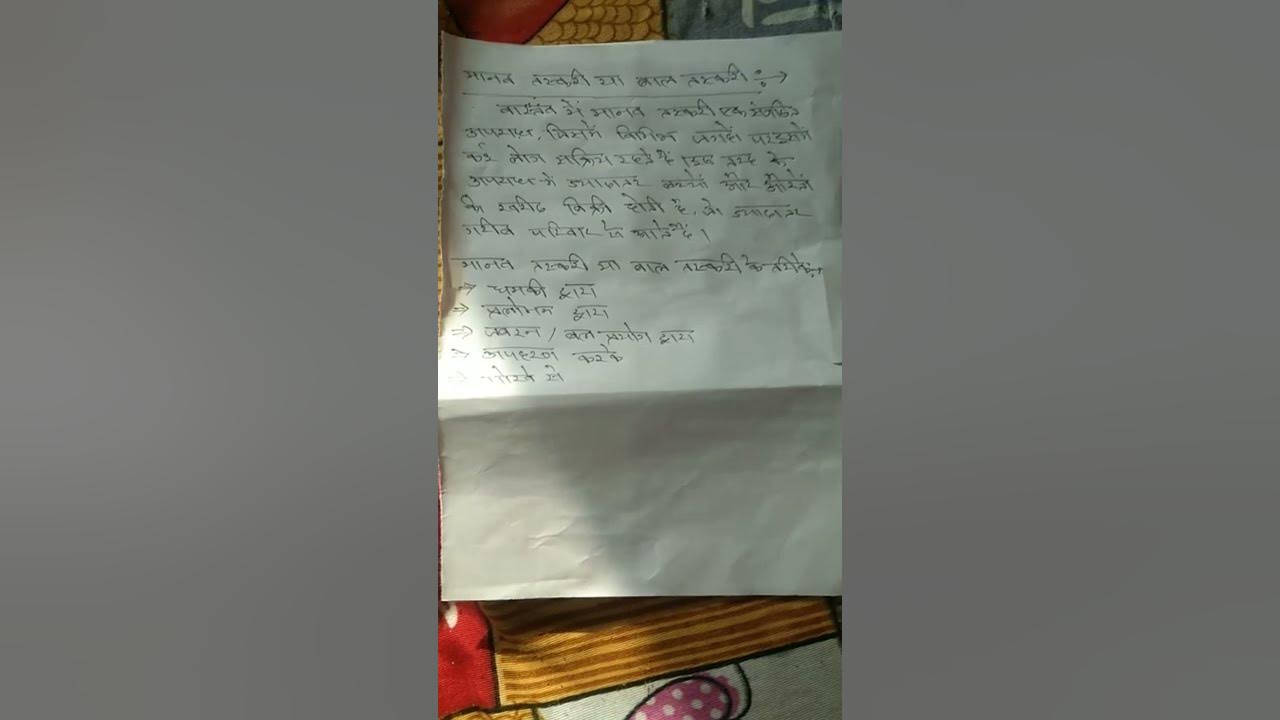 मानव तस्करी या बाल तस्करी :→
वास्तव में मानव तस्करी एक संगठित
अपराध, जिसमें विभिन्न जगहों पर इसमें
कई लोग सक्रिय रहते हैं। इस तरह के
अपराध में ज्यादातर बच्चों और औरतों
के खरीद बिक्री होती है, जो ज्यादातर
गरीब परिवार के आते हैं।
मानव तस्करी या बाल तस्करी के तरीके:
⇒ धमकी द्वारा
⇒ प्रलोभन द्वारा
⇒ जबरन / बल प्रयोग द्वारा
⇒ अपहरण करके
⇒ धोखे से